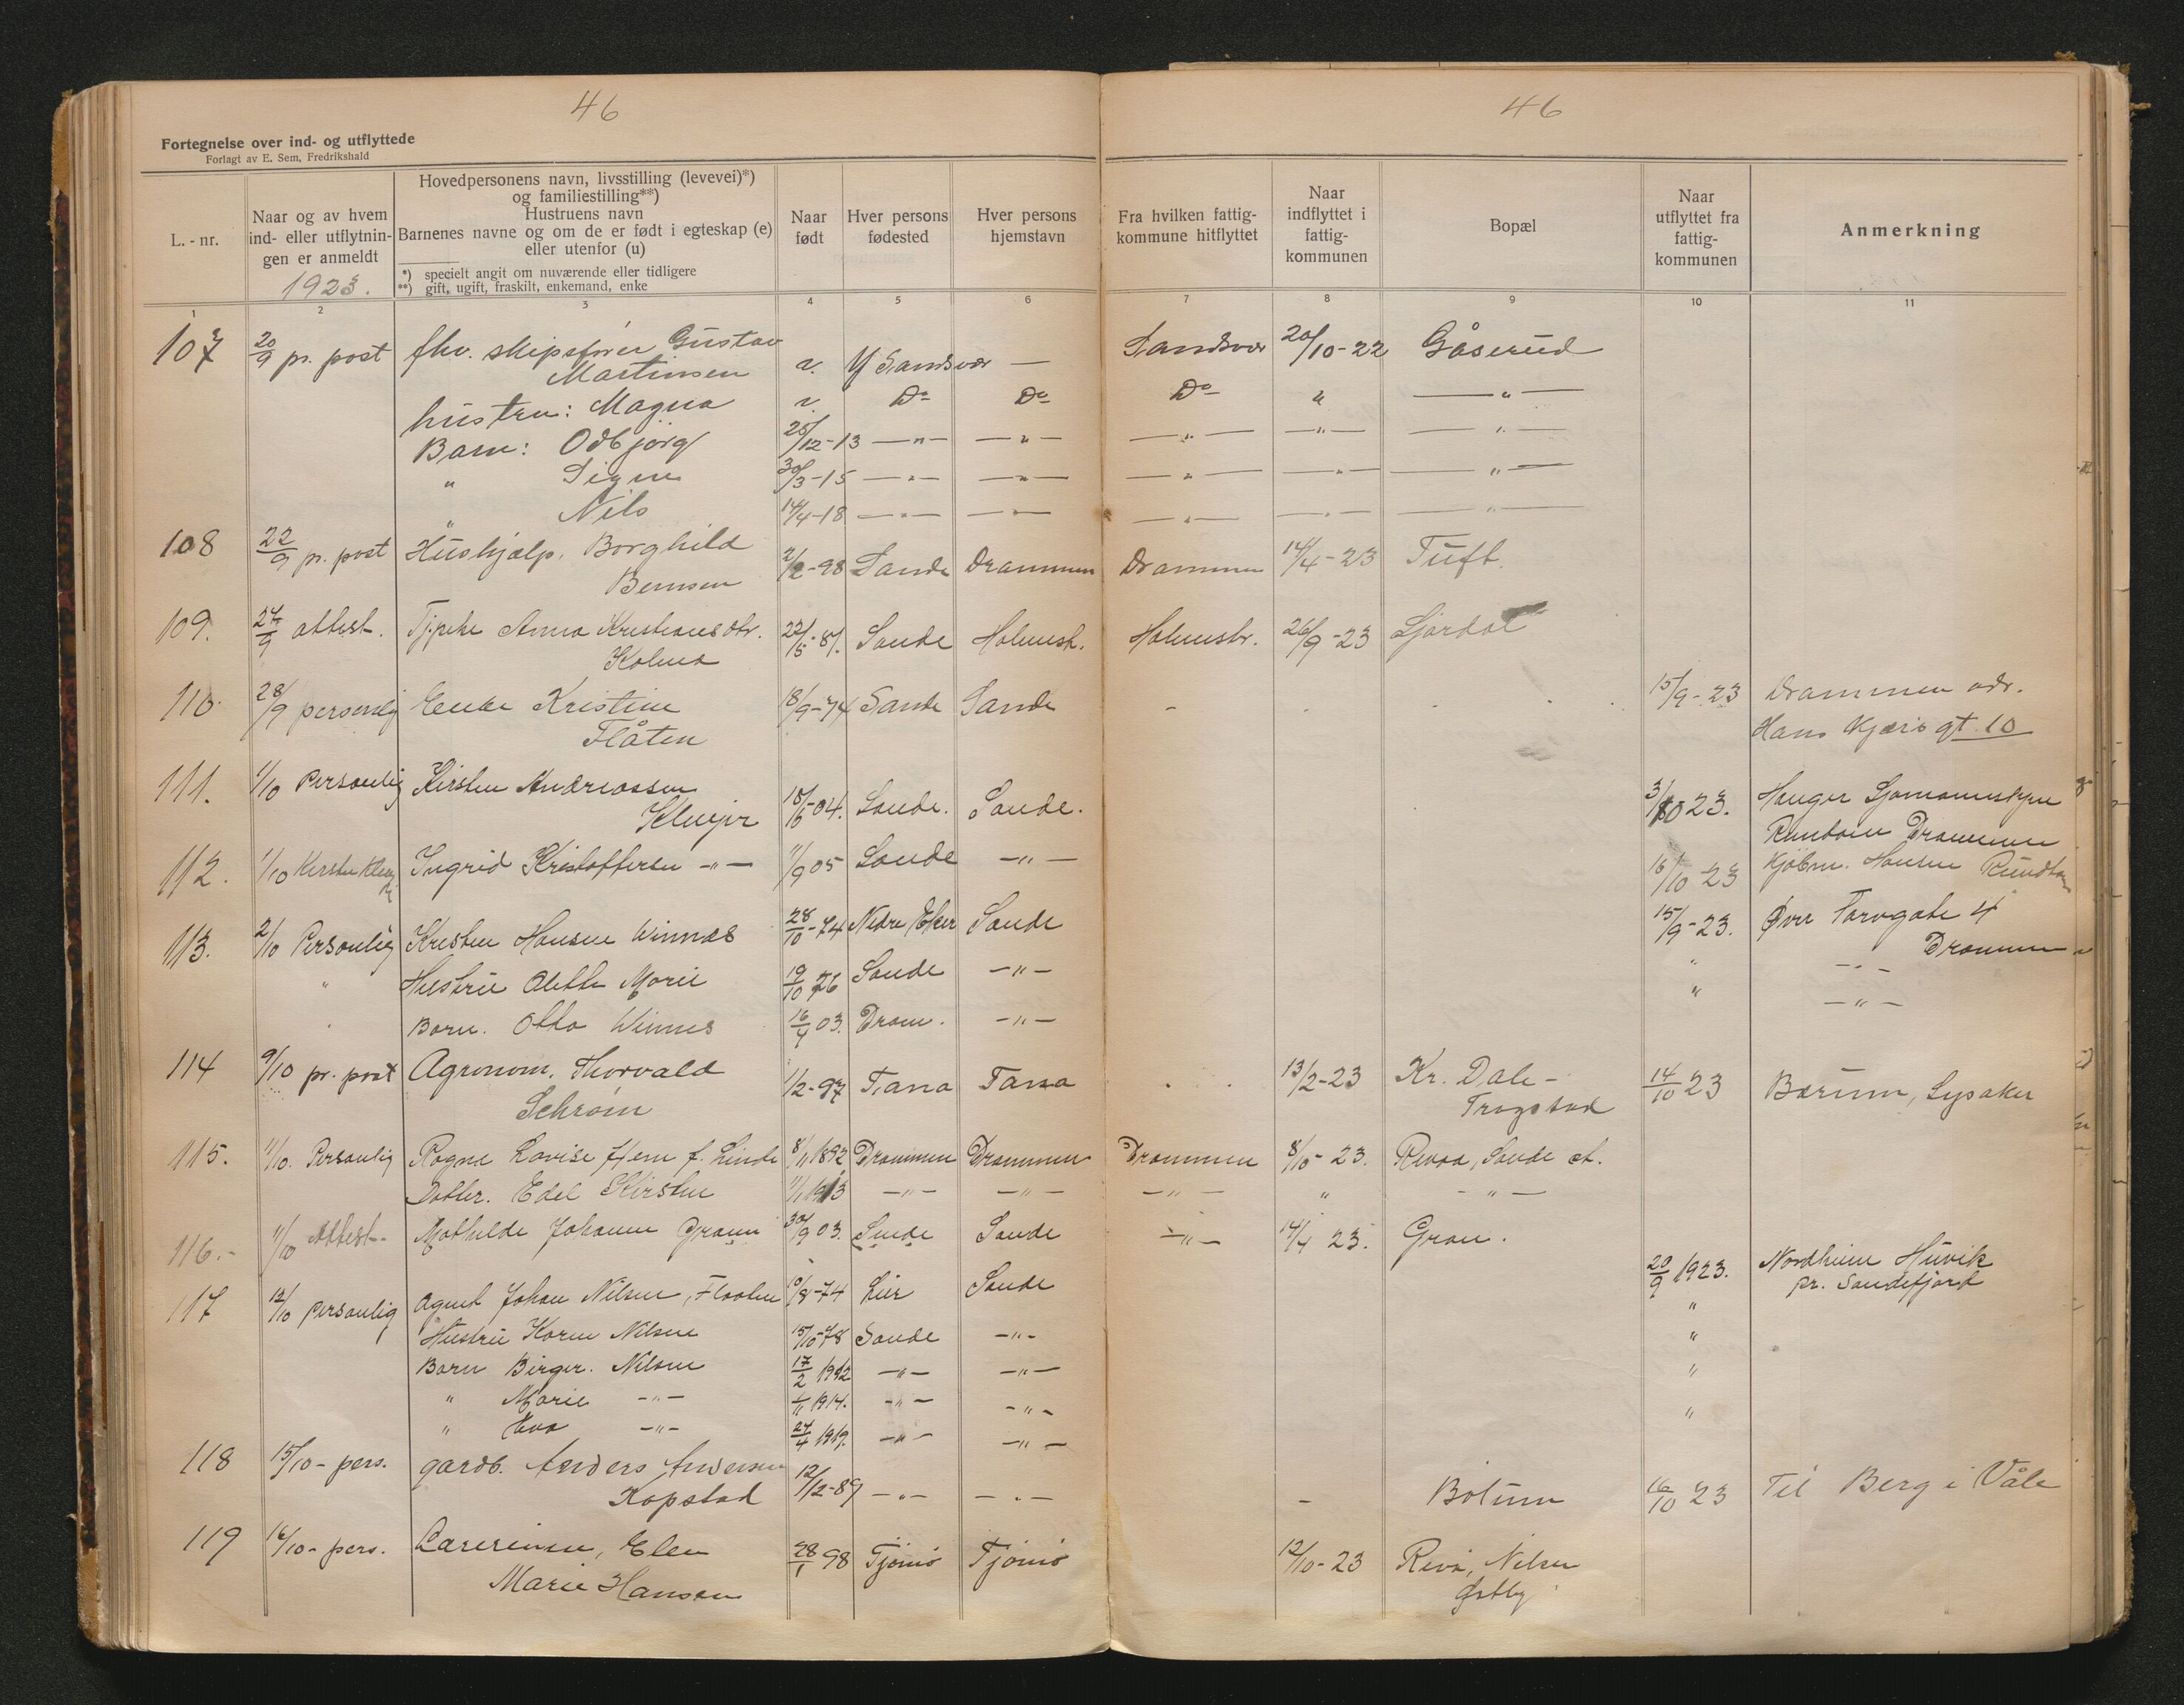 46
46
Fortegnelse over ind- og utflyttede
Forlagt av E. Sem, Fredrikshald
L.-nr.
Naar og av hvem ind- eller utflytningen er anmeldt
1923.
Hovedpersonens navn, livsstilling (levevei)*)
og familiestilling**)
Hustruens navn
Barnenes navne og om de er født i egteskap (e)
eller utenfor (u)
*) specielt angit om nuværende eller tidligere
**) gift, ugift, fraskilt, enkemand, enke
Naar født
Hver persons fødested
Hver persons hjemstavn
Fra hvilken fattigkommune hitflyttet
Naar indflyttet i fattigkommunen
Bopæl
Naar utflyttet fra fattigkommunen
Anmerkning
1 2 3 4 5 6 7 8 9 10 11
107 20/9 pr. post fhv. skipsfører Gustav Sandsvær 20/10-22 Gåserud
Martinsen Y Sandsvær —
hustru: Magna Do Do Do " — " —
Barn: Odbjörg 25/12-13 — " — — " — — " — — " — — " —
" Signe 30/3-15 — " — — " — — " — — " — — " —
" Nils 14/4-18 — " — — " — — " — — " — — " —
108 22/9 pr. post Hushjælp. Borghild 2/2-98 Sande Drammen Drammen 14/4-23 Tuft.
Bernsen
109. 24/9 attest. Tjpike Anna Kristiansdtr. 22/5-81. Sande Holmestr. Holmestr. 26/9-23 Ljordal
Kolma
110. 28/9 personlig Enke Kristine 18/9-74 Sande Sande - 15/9-23 Drammen adr.
Flåten Hans Kjærs gt 10
111. 1/10 Personlig Kirsten Andreassen 3/10 23.
Klevjer 04. Sande. Sande. Drammen
112. 1/10 Kirsten Ingrid Kristoffersen — " — 11/9 05 Sande — " — 16/10 23 Kjöbm. Hansen
113. 2/10 Personlig Kristen Hansen Winnæs 28/10-74 Nedre Eker Sande 15/9-23. Øvre Torvgate 4
Drammen
" Hustru Alette Marie 19/10 76 Sande — " — " — " —
Barn. Otto Winnes 16/4 03. Dram. — " — " — " —
114 9/10 pr. post Agronom. Thorvald 1/2-97 Tana Tana 13/2-23 Kr. Dale- 14/10 23 Bærum, Lysaker
Schrøin Trogstad
115. 11/10. Personlig Ragne Lovise Hem f. Linde 8/11 1892 Drammen Drammen Drammen 8/10-23. Revaa, Sande st.
Datter. Edel Kirsten 11/1 1913 — " — — " — — " — " — " —
116.- 11/10 Attest- Mathilde Johanne Graan 30/9 03. Sande Sande — " — 14/4 23. Gran.
117 12/10 personlig Agent Johan Nilsen, Flaaten 10/8-74 Lier Sande 20/9 1923. Nordheim Huvik
pr. Sandefjord
Hustru Karen Nilsen 15/10-78 Sande — " — "
Barn Birger. Nilsen 17/2 1912 — " — — " — "
" Marie — " — 1914. — " — — " — "
" Eva — " — 24/4 1919. — " — — " — "
118 15/10- pers. gardb. Anders Andersen 12/2-89 — " — — " — - Bolum 16/10 23 Til Berg i Våle
Kopstad
119 16/10- pers. Lærerinne, Elen 28/1 98 Tjömö Tjömö 12/10-23 Revå, Nilsen
Marie Hansen Østby